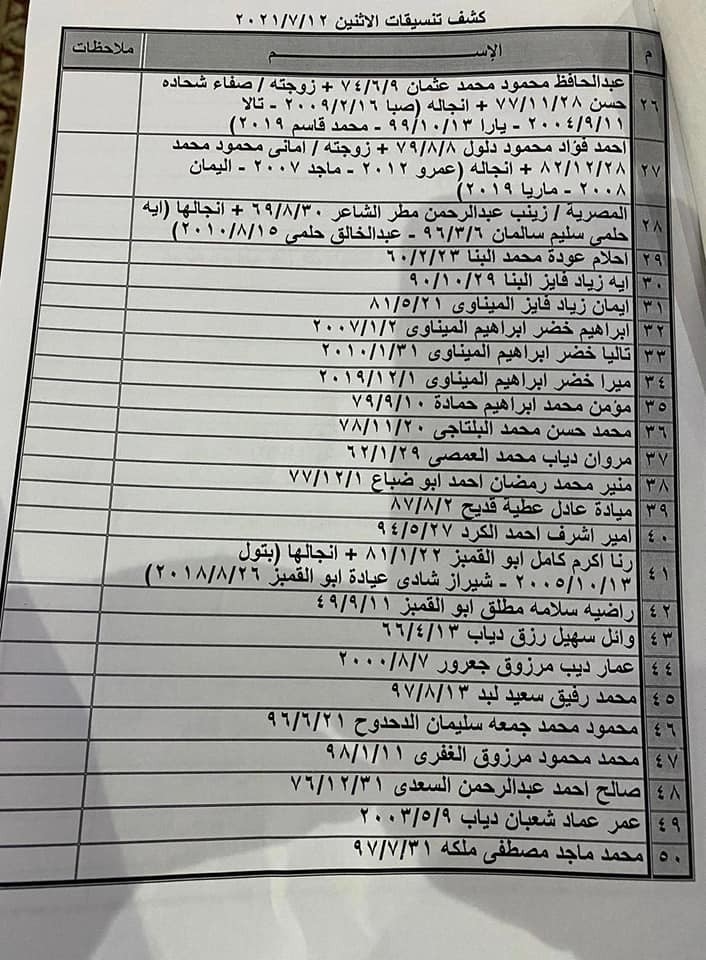 كشف تنسيقات الاثنين ٢٠٢١/٧/١٢
م الإســـــم ملاحظات
٢٦ عبدالحافظ محمود محمد عثمان ٧٤/٦/٩ + زوجته / صفاء شحاده
حسن ٧٧/١١/٢٨ + انجاله (صبا ٢٠٠٩/٢/١٦ - تالا
٢٠٠٤/٩/١١ - يارا ٩٩/١٠/١٣ - محمد قاسم ٢٠١٩)
٢٧ احمد فؤاد محمود دلول ٧٩/٨/٨ + زوجته / امانى محمود محمد
٨٢/١٢/٢٨ + انجاله (عمرو ٢٠١٢ - ماجد ٢٠٠٧ - اليمان
٢٠٠٨ - ماريا ٢٠١٩)
٢٨ المصرية / زينب عبدالرحمن مطر الشاعر ٦٩/٨/٣٠ + انجالها (ايه
حلمى سليم سالمان ٩٦/٣/٦ - عبدالخالق حلمى ٢٠١٠/٨/١٥)
٢٩ احلام عودة محمد البنا ٦٠/٢/٢٣
٣٠ ايه زياد فايز البنا ٩٠/١٠/٢٩
٣١ ايمان زياد فايز الميناوى ٨١/٥/٢١
٣٢ ابراهيم خضر ابراهيم الميناوى ٢٠٠٧/١/٢
٣٣ تاليا خضر ابراهيم الميناوى ٢٠١٠/١/٣١
٣٤ ميرا خضر ابراهيم الميناوى ٢٠١٩/١٢/١
٣٥ مؤمن محمد ابراهيم حمادة ٧٩/٩/١٠
٣٦ محمد حسن محمد البلتاجى ٧٨/١١/٢٠
٣٧ مروان دياب محمد العمصى ٦٢/١/٢٩
٣٨ منير محمد رمضان احمد ابو ضباع ٧٧/١٢/١
٣٩ ميادة عادل عطية قديح ٨٧/٨/٢
٤٠ امير اشرف احمد الكرد ٩٤/٥/٢٧
٤١ رنا اكرم كامل ابو القمبز ٨١/١/٢٢ + انجالها (بتول
٢٠٠٥/١٠/١٣ - شيراز شادى عيادة ابو القمبز ٢٠١٨/٨/٢٦)
٤٢ راضيه سلامه مطلق ابو القمبز ٤٩/٩/١١
٤٣ وائل سهيل رزق دياب ٦٦/٤/١٣
٤٤ عمار ديب مرزوق جعرور ٢٠٠٠/٨/٧
٤٥ محمد رفيق سعيد لبد ٩٧/٨/١٣
٤٦ محمود محمد جمعه سليمان الدحدوح ٩٦/٦/٢١
٤٧ محمد محمود مرزوق الغفرى ٩٨/١/١١
٤٨ صالح احمد عبدالرحمن السعدى ٧٦/١٢/٣١
٤٩ عمر عماد شعبان دياب ٢٠٠٣/٥/٩
٥٠ محمد ماجد مصطفى ملكه ٩٧/٧/٣١